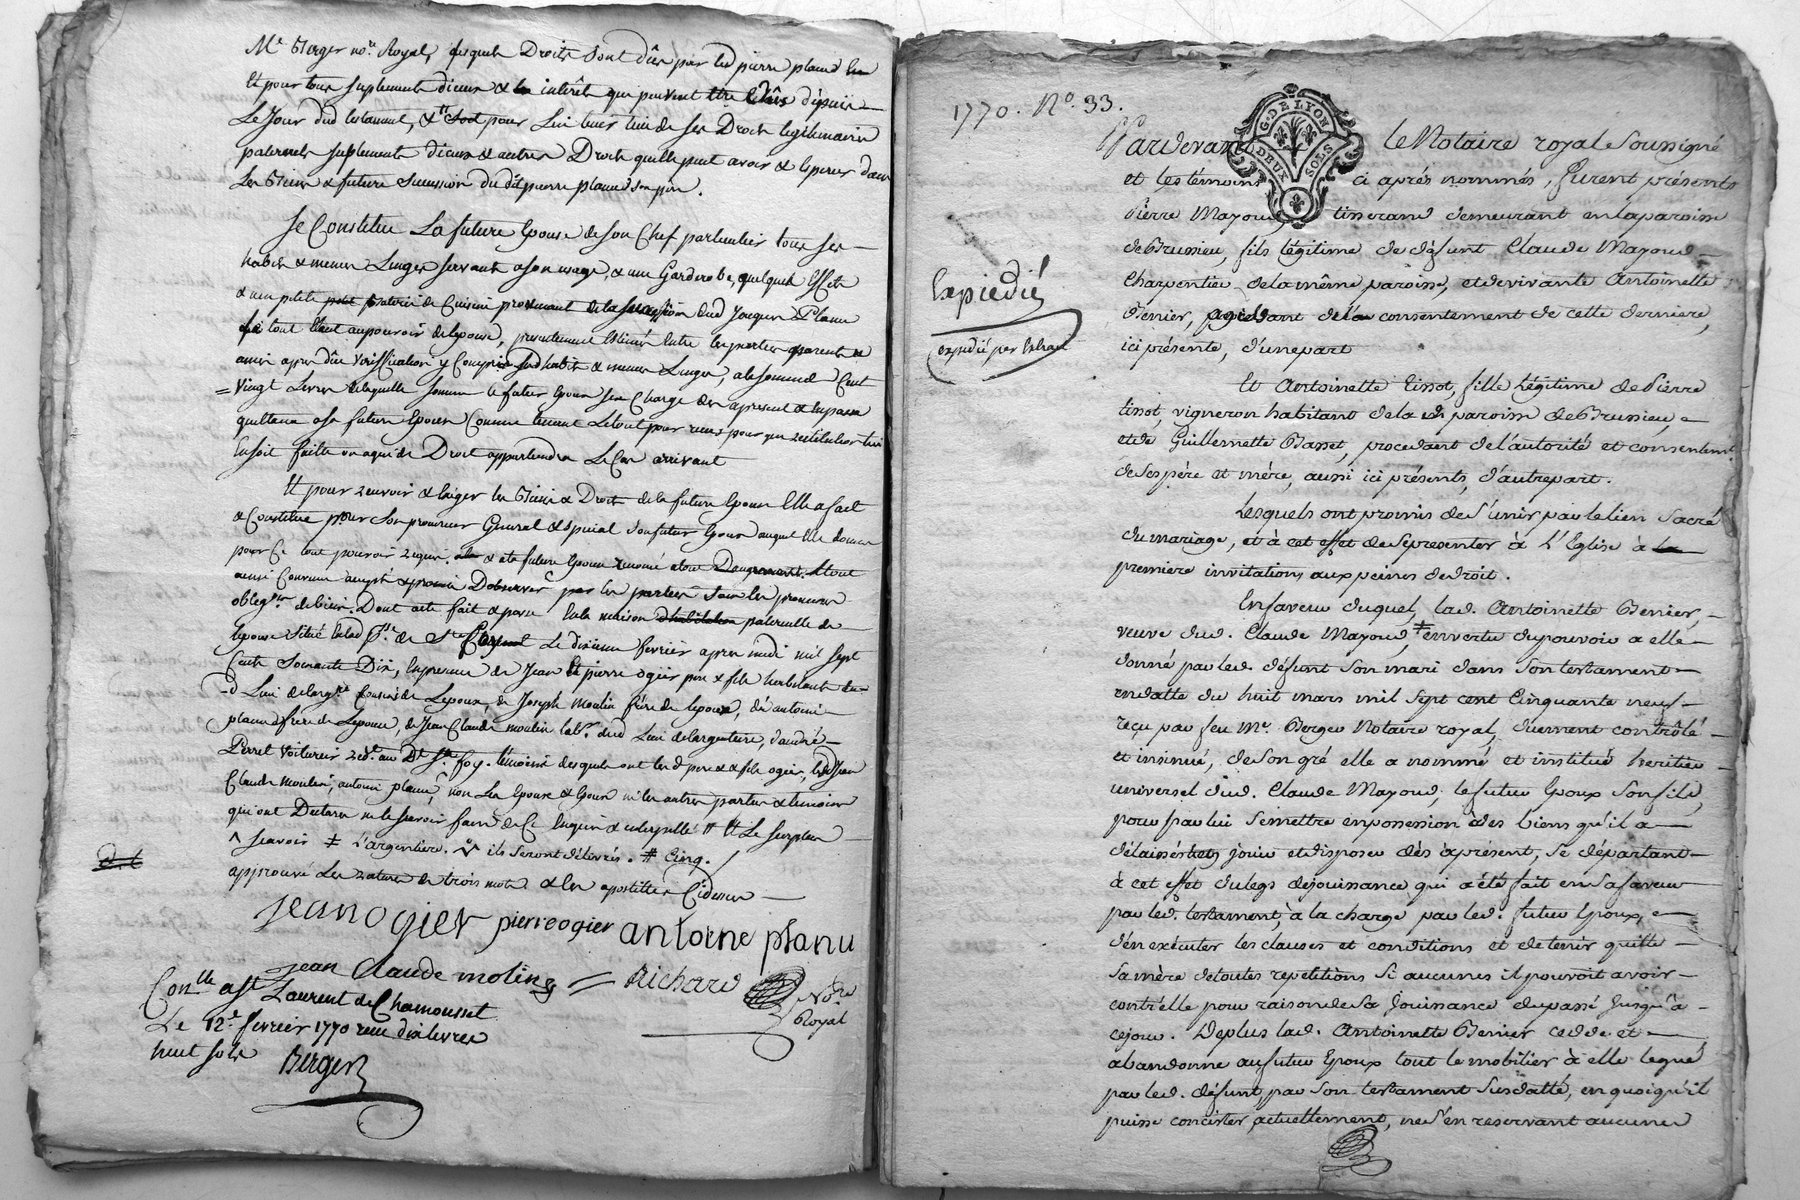 Me Berger nore Royal, lesquels Droits sont dûs par led pierre planu
Et pour tous suplements dieux & interêts que peuvent être dûs depuis
Le Jour dud testament, & pour Lui tenir lieu de ses Droits legitimaires
paternels suplements dieux & autres Droits quelle peut avoir & esperer dans
Les Biens & future succession du dit pierre planu son père.
Se Constitue La future Epouse de son Chef particulier tous ses
habits & menus Linges servants a son usage, & une Garderobe, quelques Effets
& une petite batterie de Cuisine provenant de la succession dud Jacques Planu
le tout au pouvoir de lepoux, presentement Estimés Entre les parties
ainsi apres dûe verification y Compris sesd habits & menus Linges, a la somme de Cent
vingt Livres de laquelle somme le futur Epoux se Charge des apresent & en passe
quittance a sa future Epouse Comme tenant Le tout pour reçu pour que restitution lui
En soit faitte ou a qui de Droit appartiendra Le Cas arrivant
Et pour recevoir & Exiger les Biens & Droits de la future Epouse Elle a fait
& Constitué pour son procureur General & special son futur Epoux auquel Elle donne
pour Ce tout pouvoir requis
ainsi Convenu accepté & promis D'observer par les parties sous les
obligons de biens. Dont acte fait & passé En la maison d'habitation paternelle de
lepouse située Enlad psse de Ste Foy Le dixieme fevrier apres midi mil sept
Cents Soixante Dix, En presence de Jean Et pierre ogier pere & fils habitants du
d Lieu de largre Cousins de Lepoux, de Joseph Moulin frère de lepoux, de antoine
planu frère de Lepouse, de Jean Claude moulin labr. dud Lieu de largentiere, d'andré
Perret voiturier redt. au Dt Ste foy. témoins desquels ont lesd pere & fils ogier, led Jean
Claude moulin, antoine planu, non Les Epoux & Epouse ni les autres parties & temoins
qui ont Declaré ne le sçavoir faire de Ce Enquis & interpellés # Et Le surplus
^ sçavoir ≠ L'argentiere. ils seront délivrés. # Cinq.
approuvé Les ratures de trois mots & les apostilles Cidessus
jean ogier pierre ogier antoine planu
jean Claude moling = Richard Nore
Royal
Conlle a St Laurent de Chamousset
Le 12e fevrier 1770 reçu dix livres
huit sols
Berger
1770. No. 33.
G. DE LYON
DEUX SOLS
Expiedié
expedié par Extrait
Pardevant le Notaire royal Soussigné
et les témoins ci après nommés, furent présents
Pierre Mayoud tisserand demeurant en la paroisse
de Brussieu, fils légitime de défunt Claude Mayoud
Charpentier de la même paroisse, et de vivante Antoinette
Benier, procedant de consentement de cette derniere,
ici présente, d'une part
Et Antoinette Tissot, fille légitime de Pierre
Tissot, vigneron habitant de lad paroisse de Brussieu,
et de Guillemette Basset, procedant de l'autorité et consentemt.
de ses père et mère, aussi ici présents, d'autre part.
Lesquels ont promis de S'unir par le lien Sacré
du mariage, et à cet effet de Se presenter à l'Eglise à
premiere invitations aux peines de droit.
En faveur duquel, lad. Antoinette Benier,
veuve dud. Claude Mayoud, ≠ en vertu du pouvoir a elle
donné par led. défunt Son mari dans Son testament
en datte du huit mars mil Sept cent Cinquante neuf
reçu par feu Me. Berger Notaire royal, duement contrôlé
et insinué, de Son gré elle a nommé et institué heritier
universel dud. Claude Mayoud, le futur Epoux Son fils,
pour par lui Se mettre en possession des biens qu'il a
délaissés, jouir et disposer dès àprésent, Se départant
à cet effet du legs de jouissance qui a été fait en Sa faveur
par led. testament, à la charge par led. futur Epoux,
d'en exécuter les clauses et conditions et de tenir quitte
Sa mère de toutes repetitions Si aucunes il pouvoit avoir
contr'elle pour raison de Sa jouissance du passé jusqu'à
ce jour. De plus lad. Antoinette Benier cedde et
abandonne au futur Epoux tout le mobilier à elle legué
par led. défunt, par Son testament Susdatté, en quoi qu'il
puisse concister actuellement, ne S'en reservant aucune